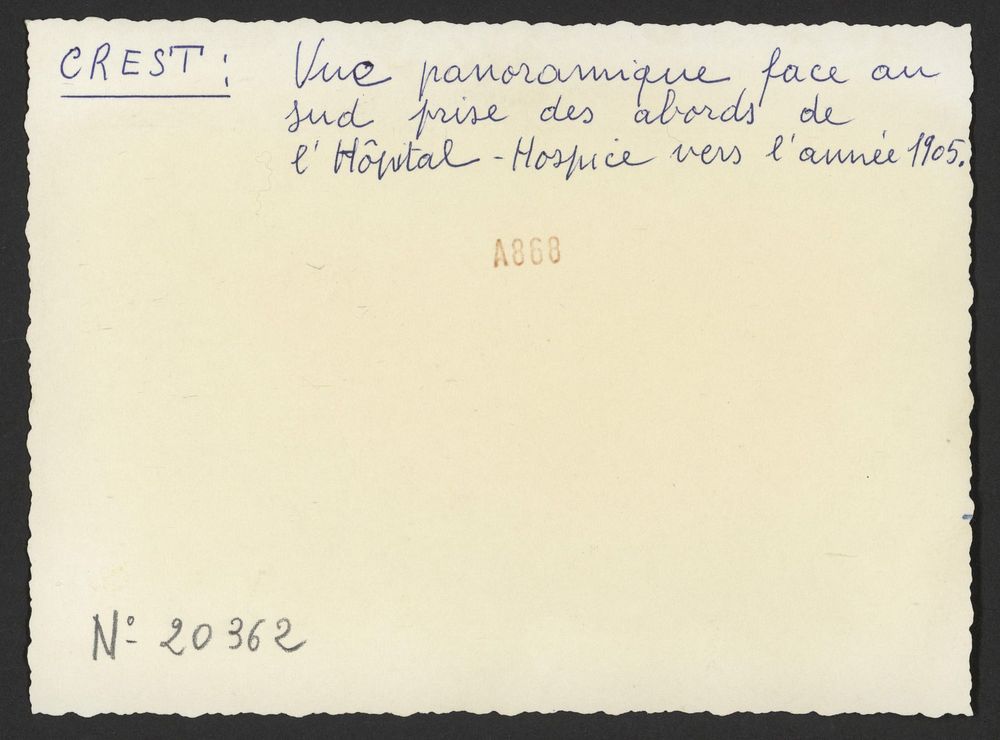 CREST : Vue panoramique face au
sud prise des abords de
l'Hôpital - Hospice vers l'année 1905.
A868
N° 20362